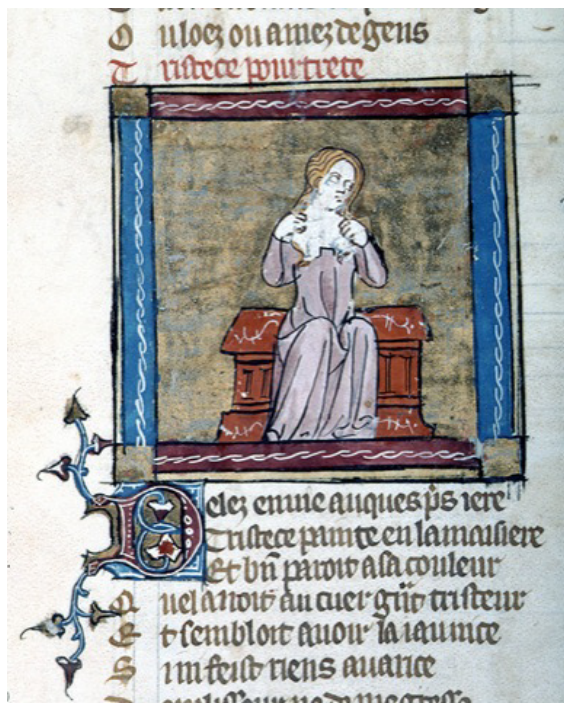 O u loez ou amez de gens
T ristece pourtrete
Delez enuie auques ps iere
Tristece painte en la maisiere
Et bn paroit a sa couleur
Q uel auoit au cuer gnt tristeur
E t sembloit auoir la iaunice
S i ni feist riens auarice